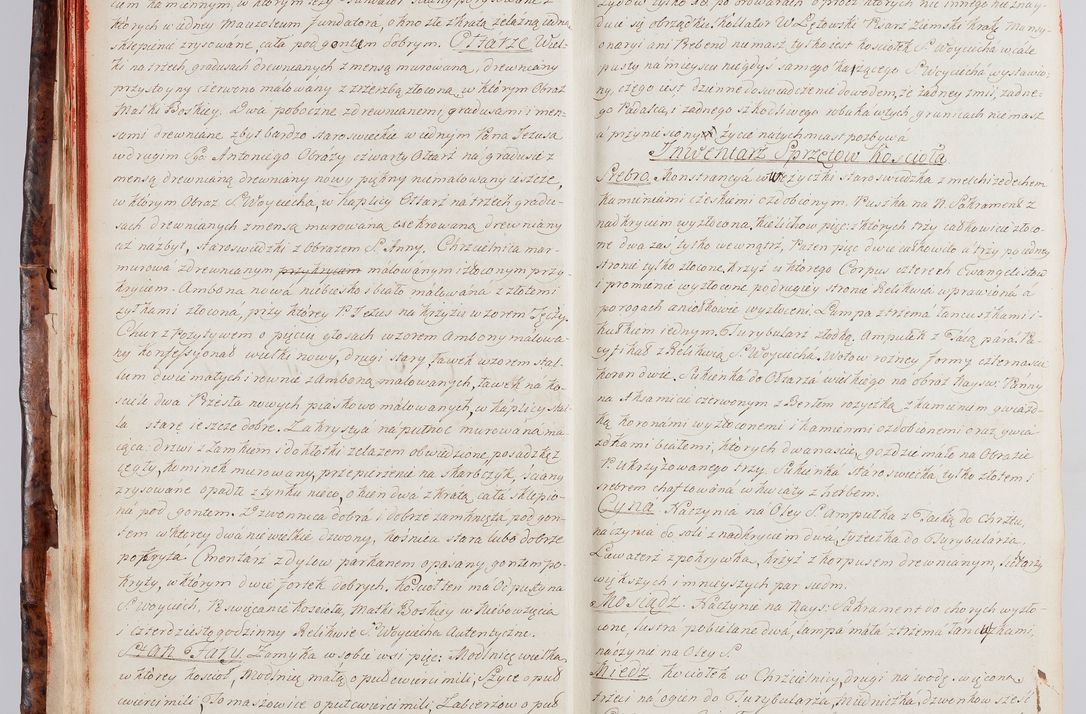 których w iedny Mauzoleum fundatora, okno złe z kratą zelazną cała
sklepienie zrysowane cała pod gontem dobrym. Ołtárze Wiel-
ki na trzech gradusach drewnianych z mensą murowaną, drewniany
przystoyny czerwono málowány z rzezbą złoconą, w którym Obraz
Matki Boskiey. Dwa poboczne z drewnianemi gradusami i men-
sami drewniane zbyt bardzo staroswieckie w iednym Pana Jezusa
w drugim Sgo: Antoniego Obrázy czwarty Ołtarz ná gradusie z
mensą drewnianą drewniany nowy piękny niemalowany ieszcze,
w którym Obraz S. Woyciecha, w kaplicy Ołtarz na trzech gradu-
sach drewnianych z mensą murowaną drewniany
iuż názbyt, staroswiecki z obrazem S. Anny. Chrzcielnica mar-
murowá z drewnianym przykryciem málowánym i złoconym przy-
kryciem. Ambona nowá niebiesko i biało málowaná z złotemi
zytkami złocona, przy którey P. Jezus na krzyżu wzorem Tęczy.
Chur z Pozytywem o pięciu głosach wzorem Ambony malowa-
ny konfessyonał wielki nowy, drugi stary, ławek wzorem stal-
lum dwie małych i rownie z Amboną malowanych, ławek na ko-
sciele dwa Krzesła nowych piaskowo málowanych, w káplicy stal-
la stare ieszcze dobre. Zakrystya na pułnoc murowána má-
iąca drzwi z zamkiem i do kłotki zelazem obwiedzione, posadzkę z
cegły, kominek murowany, przepierzenie na skarbczyk, sciany
zrysowane opadłe z tynku nieco, okien dwa z kratą, cała sklepio-
ná pod gontem. Dzwonnica dobrá i dobrze zamknięta pod gon-
tem w ktorey dwá niewielkie dzwony, kosnica stara lubo dobrze
pokrytá. Cmentárz z dylow parkanem opasany, gontem po-
kryty, w którym dwie fortek dobrych. Kościoł ten ma Odpusty na
S. Woyciech, Poswięcanie koscioła, Matki Boskiey w Niebowzięcia
i Czterdziestogodzinny Relikwie S. Woyciecha Autentyczne.
Stan Fáry. Zamyka w sobie wsi pięc: Modlnicę wielką,
w ktorey kościoł, Modlnicę małą o puł cwierci mili, Szyce o puł
cwierci mili, Tomaszowice o puł cwierci mili, Zabierzow o puł
duie się obrządku. Kollator W. Łętowski Pisarz Ziemski Krak. Mansy-
onaryi ani Prebend niemasz tylko iest kosciołek S. Woyciecha wcale
pusty na mieyscu niegdyś samego każącego S. Woyciechá wystawio-
ny, czego iest dzinne doswiadczenie dowodem, że żádney zmii, zadne-
go Padalca, i zadnego szkodliwego robaka w tych gruntach niemasz
á przyniesiony życie natychmiast pozbywá
Inwentarz Sprzętow Kościoła
Srebro. Monstrancya w staroswiecka z melchizedechem
kamieniami czeskiemi ozdobionym. Puszka na N. Sákrament z
nadkryciem wyzłocona. Kielichow pięc: z których trzy całkowicie złoco-
ne dwa zas tylko wewnątrz, Paten pięc dwie całkowite á trzy po iedney
stronie tylko złocone. krzyż u ktorego Corpus czterech Ewangelistow
i promienie wyzłocone po drugiey stronie Relikwie wprawioná á
po rogach aniołkowie wyzłoceni. Lampa z trzema łancuszkami i
kułkiem iednym, Turybularz i łodka, Ampułek z Tacą pará. Pa-
cyfikał z Relikwią S. Woyciecha. Wotow rożney formy czternascie
koron dwie. Sukienka do Ołtarza wielkiego na obraz Nayśw: Panny
na Aksamicie czerwonym z Berłem rożyczką z kamieniem gwiazd-
ką koronámi wyzłoconemi i kámieńmi ozdobionemi oraz gwia-
zdkami białemi, których dwanascie, gozdzie máło na Obrazie
P. Ukrzyżowanego trzy. Sukienka Staroswiecka tylko złotem i
srebrem chaftowáná w kwiaty z herbem.
Cyna. Náczynia na Oley S. Ampułka z Tacką do chrztu,
naczynia do soli z nadkryciem dwá, łyżeczka do Turybularza,
Lawaterz z pokrywką, krzyż z korpusem drewnianym, lichtarzy
większych i mnieyszych par siedm.
Mosiądz. Náczynie na Nayś: Sákrament do chorych wyzło-
cone, lustra pobielane dwá, lampa mała z trzemá łancuszkami,
naczynie na Oley S.
Miedz. kociołek w Chrzcielnicy, drugi na wodę święconą
trzeci na ogien do Turybularza, Miednicżka, dzwonkow sześć